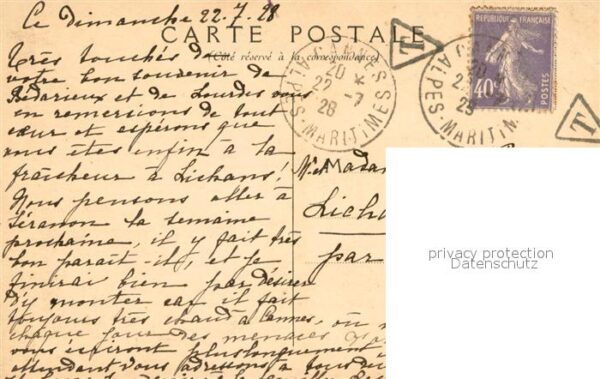 Ce Dimanche 22.7.28
CARTE POSTALE
(Côté réservé à la correspondance)
Très touchés de
votre bon souvenir de
Bédarieux et de Lourdes vous
en remercions de tout
cœur et espérons que
vous êtes enfin à la
fraîcheur à Lichans!
Nous pensons aller à
Séranon la semaine
prochaine, il y fait très
bon paraît-il, et je
finirai bien par désirer
d'y monter car il fait
toujours très chaud à Cannes, où
chaque jour des
vous écriront plus longuement
attendant vous adressons à tous
CANNES
20
22 - 7
28
ALPES-MARITIMES
T
RÉPUBLIQUE FRANÇAISE
40c
POSTES
ALPES-MARITIM
T
M. et Madam
Licha
par
privacy protection
Datenschutz